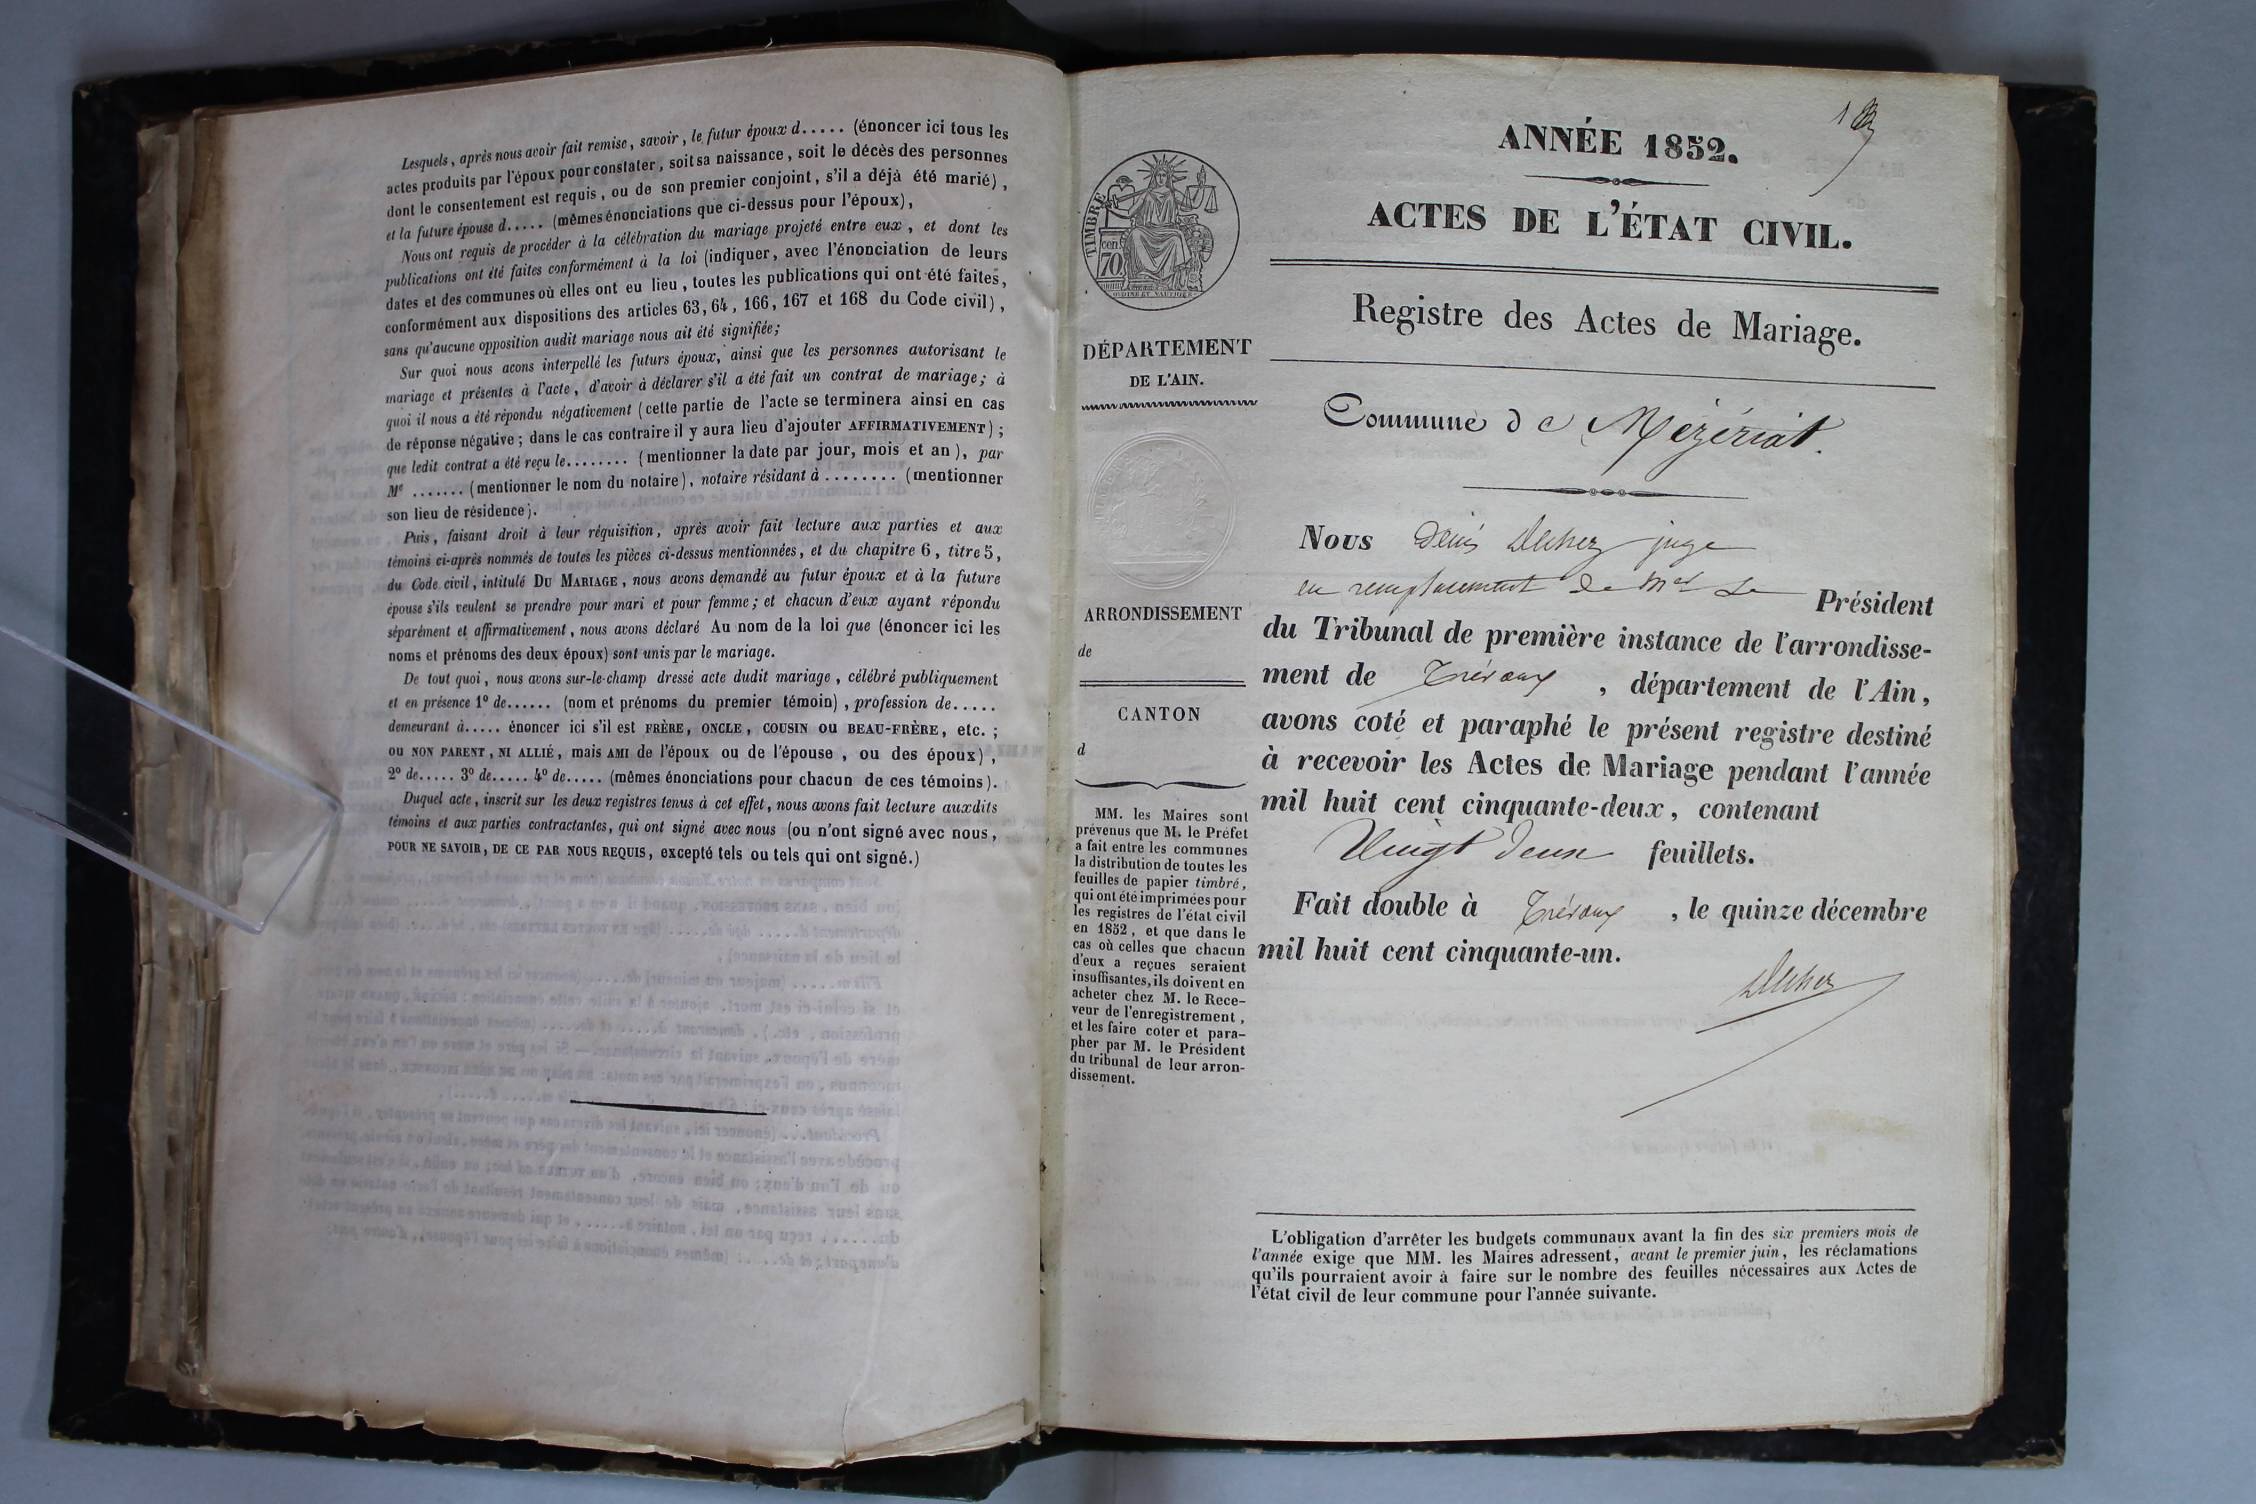 Lesquels, après nous avoir fait remise, savoir, le futur époux d..... (énoncer ici tous les
actes produits par l'époux pour constater, soit sa naissance, soit le décès des personnes
dont le consentement est requis, ou de son premier conjoint, s'il a déjà été marié),
et la future épouse d..... (mêmes énonciations que ci-dessus pour l'époux),
Nous ont requis de procéder à la célébration du mariage projeté entre eux, et dont les
publications ont été faites conformément à la loi (indiquer, avec l'énonciation de leurs
dates et des communes où elles ont eu lieu, toutes les publications qui ont été faites,
conformément aux dispositions des articles 63, 64, 166, 167 et 168 du Code civil),
sans qu'aucune opposition audit mariage nous ait été signifiée;
Sur quoi nous avons interpellé les futurs époux, ainsi que les personnes autorisant le
mariage et présentes à l'acte, d'avoir à déclarer s'il a été fait un contrat de mariage; à
quoi il nous a été répondu négativement (cette partie de l'acte se terminera ainsi en cas
de réponse négative; dans le cas contraire il y aura lieu d'ajouter AFFIRMATIVEMENT);
que ledit contrat a été reçu le........ (mentionner la date par jour, mois et an), par
Me ....... (mentionner le nom du notaire), notaire résidant à ........ (mentionner
son lieu de résidence).
Puis, faisant droit à leur réquisition, après avoir fait lecture aux parties et aux
témoins ci-après nommés de toutes les pièces ci-dessus mentionnées, et du chapitre 6, titre 5,
du Code civil, intitulé DU MARIAGE, nous avons demandé au futur époux et à la future
épouse s'ils veulent se prendre pour mari et pour femme; et chacun d'eux ayant répondu
séparément et affirmativement, nous avons déclaré Au nom de la loi que (énoncer ici les
noms et prénoms des deux époux) sont unis par le mariage.
De tout quoi, nous avons sur-le-champ dressé acte dudit mariage, célébré publiquement
et en présence 1° de...... (nom et prénoms du premier témoin), profession de.....
demeurant à..... énoncer ici s'il est FRÈRE, ONCLE, COUSIN OU BEAU-FRÈRE, etc.;
OU NON PARENT, NI ALLIÉ, mais AMI de l'époux ou de l'épouse, ou des époux),
2° de..... 3° de..... 4° de..... (mêmes énonciations pour chacun de ces témoins).
Duquel acte, inscrit sur les deux registres tenus à cet effet, nous avons fait lecture auxdits
témoins et aux parties contractantes, qui ont signé avec nous (ou n'ont signé avec nous,
POUR NE SAVOIR, DE CE PAR NOUS REQUIS, excepté tels ou tels qui ont signé.)
ANNÉE 1852.
ACTES DE L'ÉTAT CIVIL.
Registre des Actes de Mariage.
Commune de Mézériat.
TIMBRE
70 cen
DÉPARTEMENT
DE L'AIN.
ARRONDISSEMENT
de
CANTON
d
MM. les Maires sont
prévenus que M. le Préfet
a fait entre les communes
la distribution de toutes les
feuilles de papier timbré,
qui ont été imprimées pour
les registres de l'état civil
en 1852, et que dans le
cas où celles que chacun
d'eux a reçues seraient
insuffisantes, ils doivent en
acheter chez M. le Rece-
veur de l'enregistrement,
et les faire coter et para-
pher par M. le Président
du tribunal de leur arron-
dissement.
Nous Denis Duhez juge
en remplacement de Mr Le Président
du Tribunal de première instance de l'arrondisse-
ment de Trévoux, département de l'Ain,
avons coté et paraphé le présent registre destiné
à recevoir les Actes de Mariage pendant l'année
mil huit cent cinquante-deux, contenant
Vingt deux feuillets.
Fait double à Trévoux, le quinze décembre
mil huit cent cinquante-un.
Duhez
L'obligation d'arrêter les budgets communaux avant la fin des six premiers mois de
l'année exige que MM. les Maires adressent, avant le premier juin, les réclamations
qu'ils pourraient avoir à faire sur le nombre des feuilles nécessaires aux Actes de
l'état civil de leur commune pour l'année suivante.